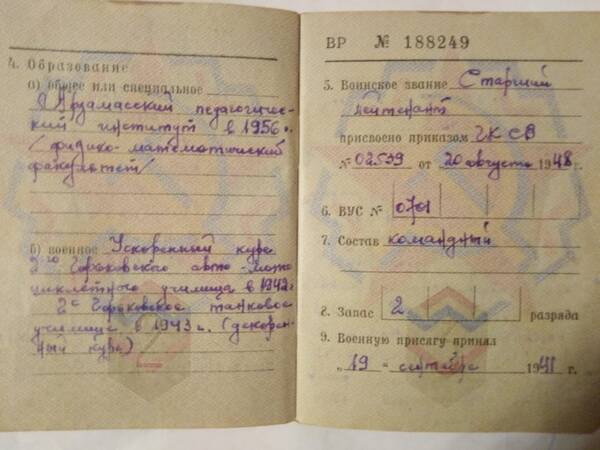 4. Образование
а) общее или специальное
Арзамасский педагогичес-
кий институт в 1956 г.
/физико-математический
факультет/
б) военное Ускоренный курс
2го Горьковского авто-мото
циклетного училища в 1942г.
2е Горьковское танковое
училище в 1943 г. (ускорен-
ный курс)
ВР № 188249
5. Воинское звание Старший
лейтенант
присвоено приказом
№ 02539 от 20 августа 1948 г.
6. ВУС № 0701
7. Состав командный
8. Запас 2 разряда
9. Военную присягу принял
„19 " сентября 1941 г.